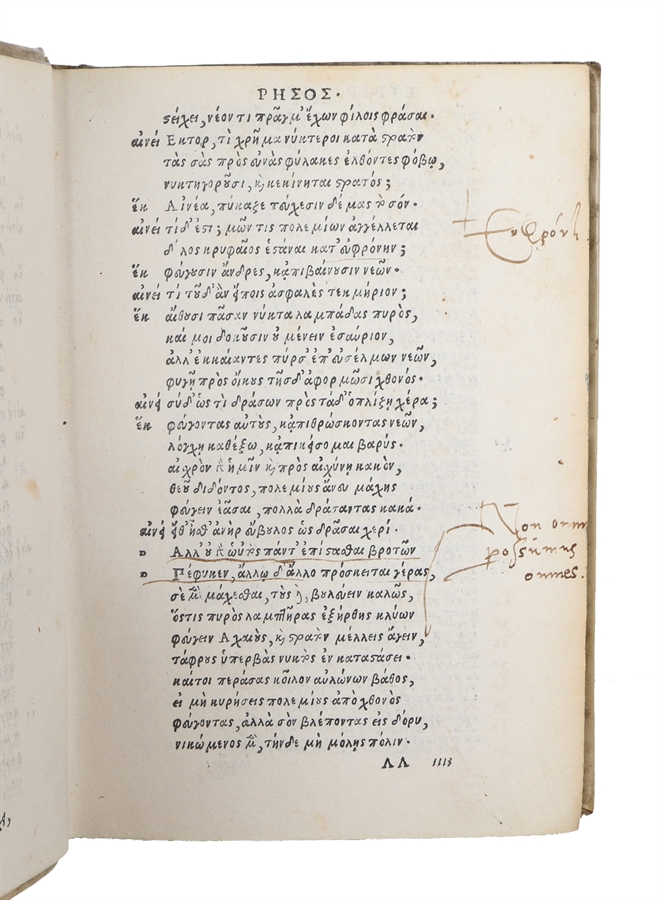 ΡΗΣΟΣ·
στείχει, νέον τι πρᾶγμ' ἔχων φίλοις φράσαι.
αἰνεί Εκτορ, τί χρῆμα νύκτεροι κατὰ στρατὸν
τὰς σὰς πρὸς εὐνὰς φύλακες ἐλθόντες φόβῳ,
νυκτηγοροῦσι, καὶ κεκίνηται στρατός;
ἕκ Αἰνέα, πύκαζε τεύχεσιν δέμας τὸ σόν.
αἰνεί τί δ' ἔστι; μῶν τις πολεμίων ἀγγέλλεται
δόλος κρυφαῖος ἑστάναι κατ' εὐφρόνην;
ἕκ φεύγουσιν ἄνδρες, κἀπιβαίνουσιν νεῶν·
αἰνεί τί τοῦδ' ἂν εἴποις ἀσφαλὲς τεκμήριον;
ἕκ αἴθουσι πᾶσαν νύκτα λαμπάδας πυρός,
καί μοι δοκοῦσιν οὐ μένειν ἐσαύριον,
ἀλλ' ἐκκαίαντες πύρσ' ἐπ' εὐσέλμων νεῶν,
φυγῇ πρὸς οἴκους τῆσδ' ἀφορμῶσι χθονός·
αἰνεί σὺ δ' ὡς τί δράσων πρὸς τάδ' ὁπλίζῃ χέρα;
ἕκ φεύγοντας αὐτοὺς, κἀπιθρώσκοντας νεῶν,
λόγχῃ καθέξω, κἀπικείσομαι βαρύς·
αἰχρὸν γὰρ ἡμῖν καὶ πρὸς αἰχύνῃ κακὸν,
θεοῦ διδόντος, πολεμίους ἄνευ μάχης
φεύγειν ἐᾶσαι, πολλὰ δράσαντας κακά·
αἰνεί εἴθ' ἦσθ' ἀνὴρ εὔβουλος ὡς δρᾶσαι χερί·
» Ἀλλ' οὐ γὰρ ωὑτὸς πάντ' ἐπίστασθαι βροτῶν
» Πέφυκεν, ἄλλῳ δ' ἄλλο πρόσκειται γέρας,
σὲ μὲν μάχεσθαι, τοὺς δὲ, βουλεύειν καλῶς,
ὅστις πυρὸς λαμπτῆρας ἐξήρθης κλύων
φεύγειν Ἀχαιοὺς, καὶ στρατὸν μέλλεις ἄγειν,
τάφρους ὑπερβὰς νυκτὸς ἐν καταστάσει·
καίτοι περάσας κοῖλον αὐλώνων βάθος,
εἰ μὴ κυρήσεις πολεμίους ἀπὸ χθονὸς
φεύγοντας, ἀλλὰ σὸν βλέποντας εἰς δόρυ,
νικώμενος μὲν, τήνδε μὴ μόλῃς πόλιν·
ΛΛ iiii
Εὐφρόνη.
Non omnia
possumus
omnes.